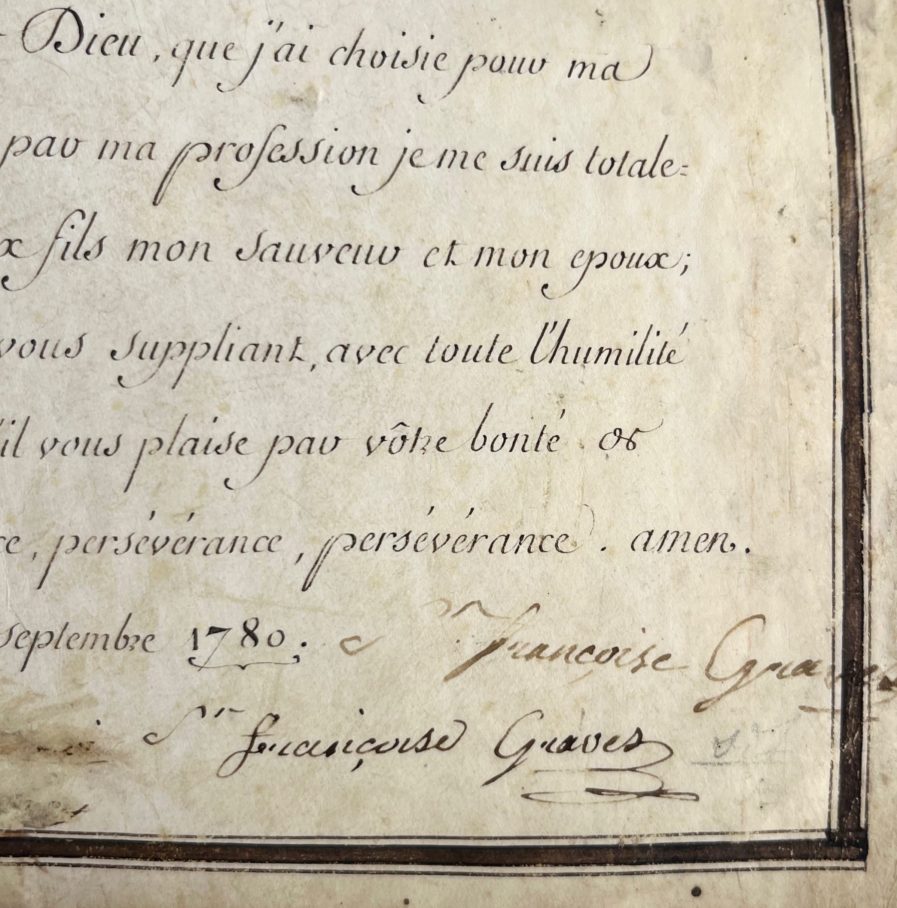 Dieu, que j'ai choisie pour ma
par ma profession je me suis totale=
x fils mon sauveur et mon epoux;
vous suppliant, avec toute l'humilité
'il vous plaise par vôtre bonté et
ce, persévérance, persévérance. amen.
septembre 1780; Sr françoise Graves
Sr françoise Graves